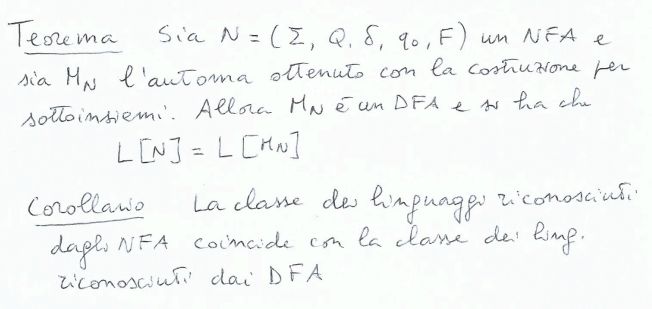 Teorema Sia N = (Σ, Q, δ, q₀, F) un NFA e
sia M_N l'automa ottenuto con la costruzione per
sottoinsiemi. Allora M_N è un DFA e si ha che
L[N] = L[M_N]
Corollario La classe dei linguaggi riconosciuti
dagli NFA coincide con la classe dei ling.
riconosciuti dai DFA